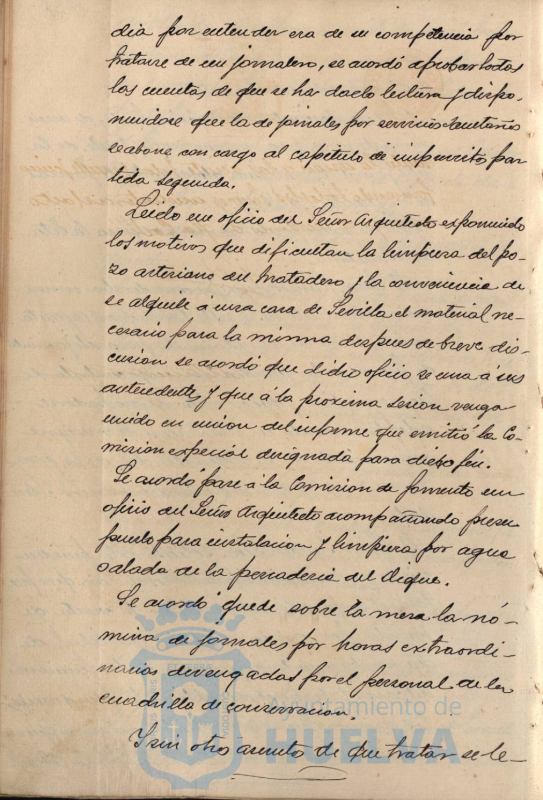 dia por entender era de su competencia por
tratarse de un jornalero, se acordó aprobar todas
las cuentas de que se ha dado lectura y dispo-
niendose que la de jornales por servicios Sanitarios
se abone con cargo al capitulo de imprevistos par-
tida segunda.
Leido un oficio del Señor Arquitecto exponiendo
los motivos que dificultan la limpieza del po-
zo artesiano del Matadero y la conveniencia de
se alquile á una casa de Sevilla el material ne-
cesario para la misma despues de breve dis-
cusion se acordó que dicho oficio se una á sus
antecedentes y que á la proxima sesion venga
unido en union del informe que emitió la Co-
mision especial designada para dicho fin.
Se acordó pase á la Comision de fomento un
oficio del Señor Arquitecto acompañando presu
puesto para instalacion y limpieza por agua
salada de la pescaderia del dique.
Se acordó quede sobre la mesa la nó-
mina de jornales por horas extraordi-
narias devengadas por el personal de la
cuadrilla de conservacion.
Y sin otro asunto de que tratar se le-
Ayuntamiento de
HUELVA